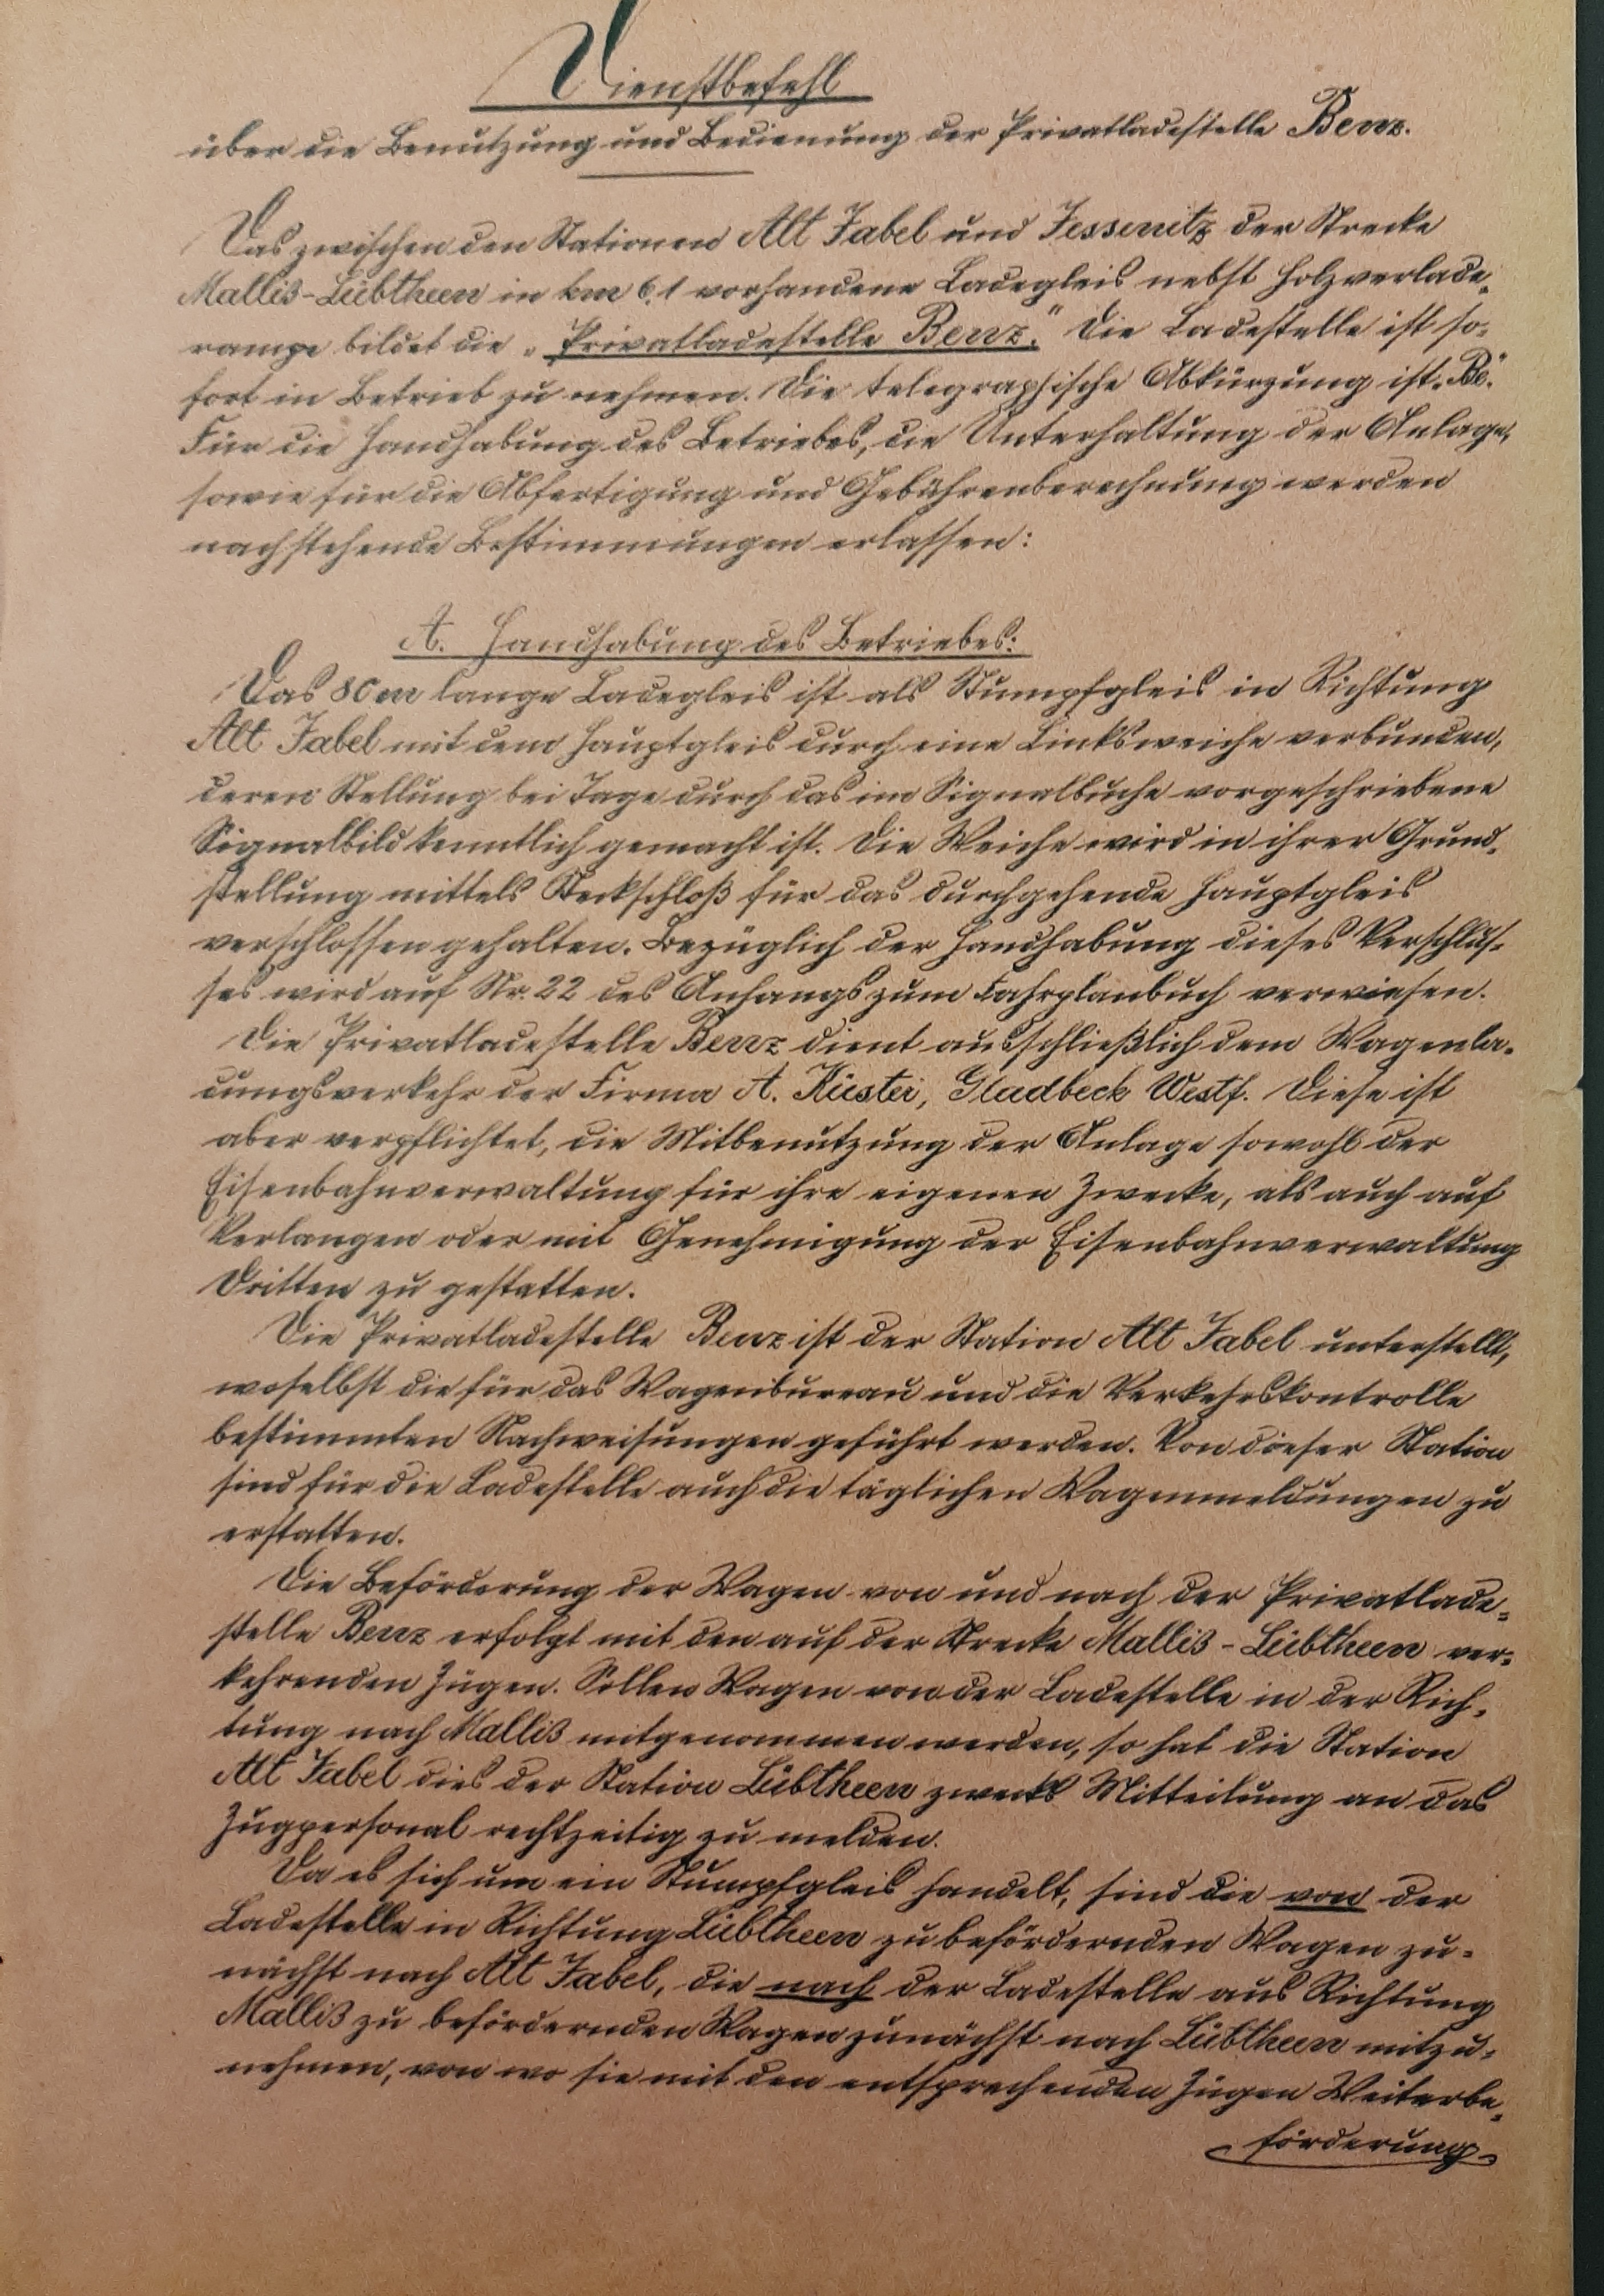 Dienstbefehl
über die Benutzung und Bedienung der Privatladestelle Benz.
Das zwischen den Stationen Alt Jabel und Jessenitz der Strecke
Malliß-Lübtheen in km 6,1 vorhandene Ladegleis nebst Holzverlade-
rampe bildet die „Privatladestelle Benz." Die Ladestelle ist so-
fort in Betrieb zu nehmen. Die telegraphische Abkürzung ist „Be".
Für die Handhabung des Betriebes, die Unterhaltung der Anlage,
sowie für die Abfertigung und Gebührenberechnung werden
nachstehende Bestimmungen erlassen:
A. Handhabung des Betriebes:
Das 80 m lange Ladegleis ist als Stumpfgleis in Richtung
Alt Jabel mit dem Hauptgleis durch eine Linksweiche verbunden,
deren Stellung bei Tage durch das im Signalbuche vorgeschriebene
Signalbild kenntlich gemacht ist. Die Weiche wird in ihrer Grund-
stellung mittels Steckschloß für das durchgehende Hauptgleis
verschlossen gehalten. Bezüglich der Handhabung dieses Verschlus-
ses wird auf Nr. 22 des Anhangs zum Fahrplanbuch verwiesen.
Die Privatladestelle Benz dient ausschließlich dem Wagenla-
dungsverkehr der Firma A. Küster, Gladbeck Westf. Diese ist
aber verpflichtet, die Mitbenutzung der Anlage sowohl der
Eisenbahnverwaltung für ihre eigenen Zwecke, als auch auf
Verlangen oder mit Genehmigung der Eisenbahnverwaltung
Dritten zu gestatten.
Die Privatladestelle Benz ist der Station Alt Jabel unterstellt,
woselbst die für das Wagenbureau und die Verkehrskontrolle
bestimmten Nachweisungen geführt werden. Von dieser Station
sind für die Ladestelle auch die täglichen Wagenmeldungen zu
erstatten.
Die Beförderung der Wagen von und nach der Privatlade-
stelle Benz erfolgt mit den auf der Strecke Malliß-Lübtheen ver-
kehrenden Zügen. Sollen Wagen von der Ladestelle in der Rich-
tung nach Malliß mitgenommen werden, so hat die Station
Alt Jabel dies der Station Lübtheen zwecks Mitteilung an das
Zugpersonal rechtzeitig zu melden.
Da es sich um ein Stumpfgleis handelt, sind die von der
Ladestelle in Richtung Lübtheen zu befördernden Wagen zu-
nächst nach Alt Jabel, die nach der Ladestelle aus Richtung
Malliß zu befördernden Wagen zunächst nach Lübtheen mitzu-
nehmen, von wo sie mit den entsprechenden Zügen Weiterbe-
förderung